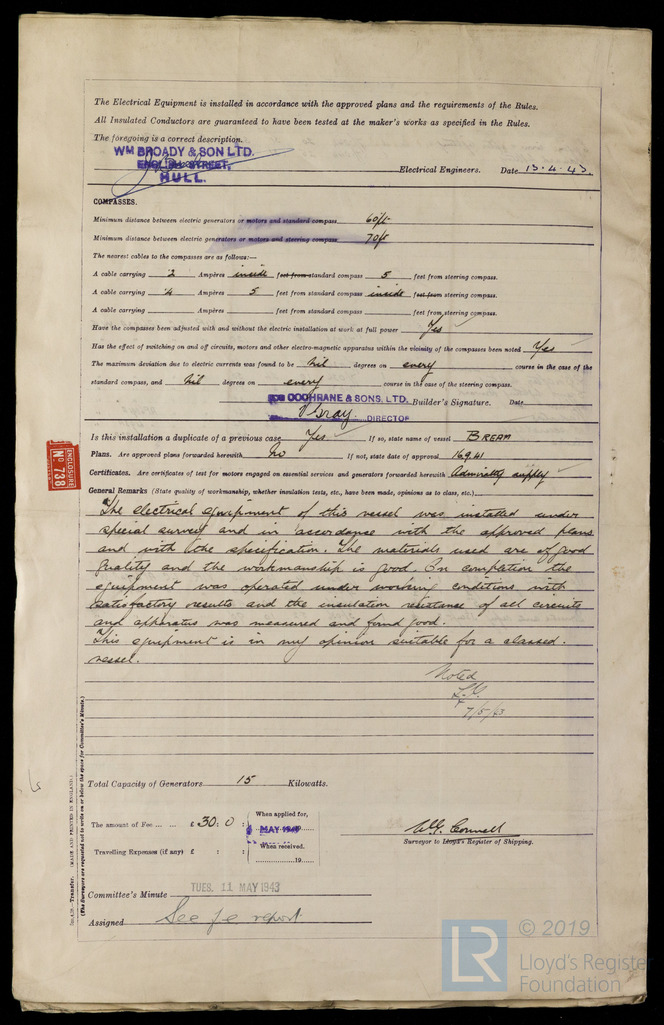 The Electrical Equipment is installed in accordance with the approved plans and the requirements of the Rules.
All Insulated Conductors are guaranteed to have been tested at the maker's works as specified in the Rules.
The foregoing is a correct description.
WM BROADY & SON LTD.
ENGLISH STREET,
HULL.
Electrical Engineers. Date 15.4.43.
COMPASSES.
Minimum distance between electric generators or motors and standard compass 60ft
Minimum distance between electric generators or motors and steering compass 70ft
The nearest cables to the compasses are as follows:—
A cable carrying 2 Ampères inside feet from standard compass 5 feet from steering compass.
A cable carrying .4 Ampères 5 feet from standard compass inside feet from steering compass.
A cable carrying Ampères feet from standard compass feet from steering compass.
Have the compasses been adjusted with and without the electric installation at work at full power Yes
Has the effect of switching on and off circuits, motors and other electro-magnetic apparatus within the vicinity of the compasses been noted Yes
The maximum deviation due to electric currents was found to be Nil degrees on every course in the case of the
standard compass, and Nil degrees on every course in the case of the steering compass.
FOR COCHRANE & SONS, LTD. Builder's Signature. Date
DIRECTOR
Is this installation a duplicate of a previous case Yes If so, state name of vessel BREAM
Plans. Are approved plans forwarded herewith No If not, state date of approval 16.9.41
Certificates. Are certificates of test for motors engaged on essential services and generators forwarded herewith Admiralty supply
General Remarks (State quality of workmanship, whether insulation tests, etc., have been made, opinions as to class, etc.)
The electrical equipment of this vessel was installed under
special survey and in accordance with the approved plans
and with the specification. The materials used are of good
quality and the workmanship is good. On completion the
equipment was operated under working conditions with
satisfactory results and the insulation resistance of all circuits
and apparatus was measured and found good.
This equipment is in my opinion suitable for a classed
vessel.
Noted
7/5/43
Total Capacity of Generators 15 Kilowatts.
The amount of Fee ... ... £ 30 : 0 :
When applied for,
MAY 1943
Travelling Expenses (if any) £ : :
When received.
19
W.G. Connell
Surveyor to Lloyd's Register of Shipping.
Committee's Minute TUES. 11 MAY 1943
Assigned See f e report
ENCLOSURE
No. 738
Transfer. (MADE AND PRINTED IN ENGLAND.)
(The Surveyors are requested not to write on or below the space for Committee's Minute.)
LR © 2019
Lloyd's Register
Foundation